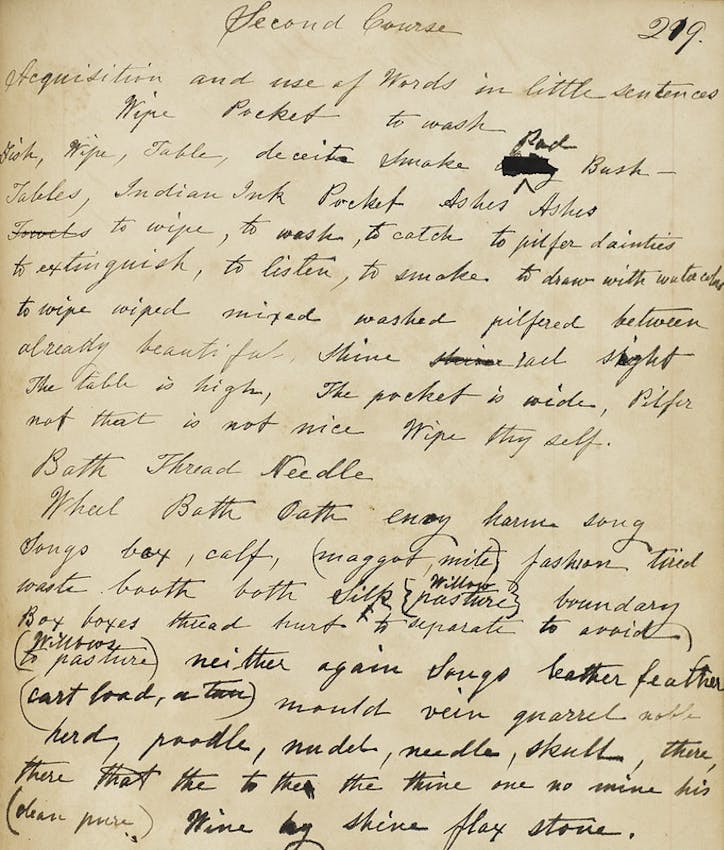 Second Course 219.
Acquisition and use of Words in little sentences
Wipe Pocket to wash
Fish, Wipe, Table, deceit smoke Rod Bush —
Tables, Indian Ink Pocket Ashes Ashes
Towels to wipe, to wash, to catch to pilfer dainties
to extinguish, to listen, to smoke to draw with watercolors
to wipe wiped mixed washed pilfered between
already beautiful, shine shine rail sight
The table is high, The pocket is wide, Pilfer
not that is not nice Wipe thy self.
Bath Thread Needle
Wheel Bath Oath envy harm song
Songs box, calf, (maggot, mite) fashion tired
waste booth both Silk {pasture} Willow boundary
Box boxes thread hurt to separate to avoid)
(Willows
to pasture) neither again Songs leather feather
(cart load, a tun) mould vein quarrel noble
herd, poodle, nudel, needle, skull, there,
there that the to thee the thine one no mine his
(clean pure) Wine by shine flax stone.